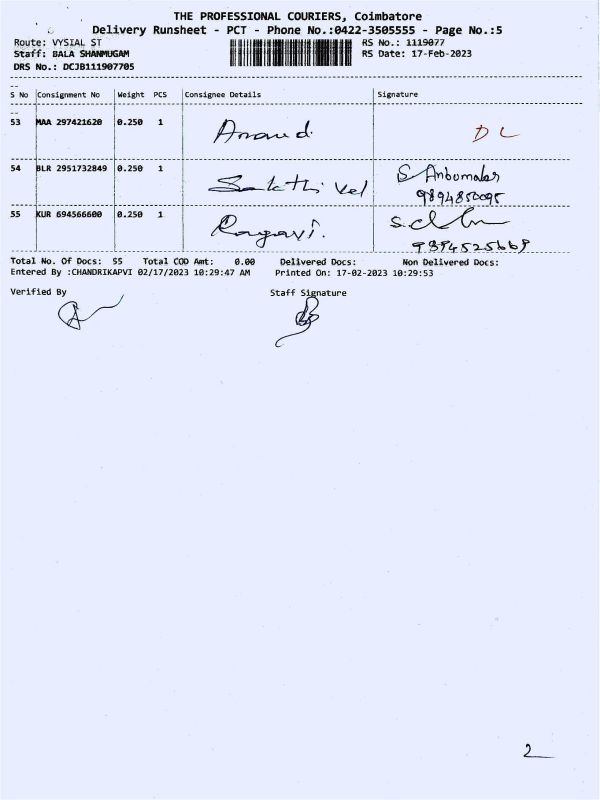 THE PROFESSIONAL COURIERS, Coimbatore
Delivery Runsheet - PCT - Phone No.:0422-3505555 - Page No.:5
Route: VYSIAL ST RS No.: 1119077
Staff: BALA SHANMUGAM RS Date: 17-Feb-2023
DRS No.: DCJB111907705
S No Consignment No Weight PCS Consignee Details Signature
53 MAA 297421620 0.250 1 Anand DL
54 BLR 2951732849 0.250 1 Sakthi vel S Anbumalar
9894850095
55 KUR 694566600 0.250 1 Ragavi.
9894525669
Total No. Of Docs: 55 Total COD Amt: 0.00 Delivered Docs: Non Delivered Docs:
Entered By :CHANDRIKAPVI 02/17/2023 10:29:47 AM Printed On: 17-02-2023 10:29:53
Verified By Staff Signature
2